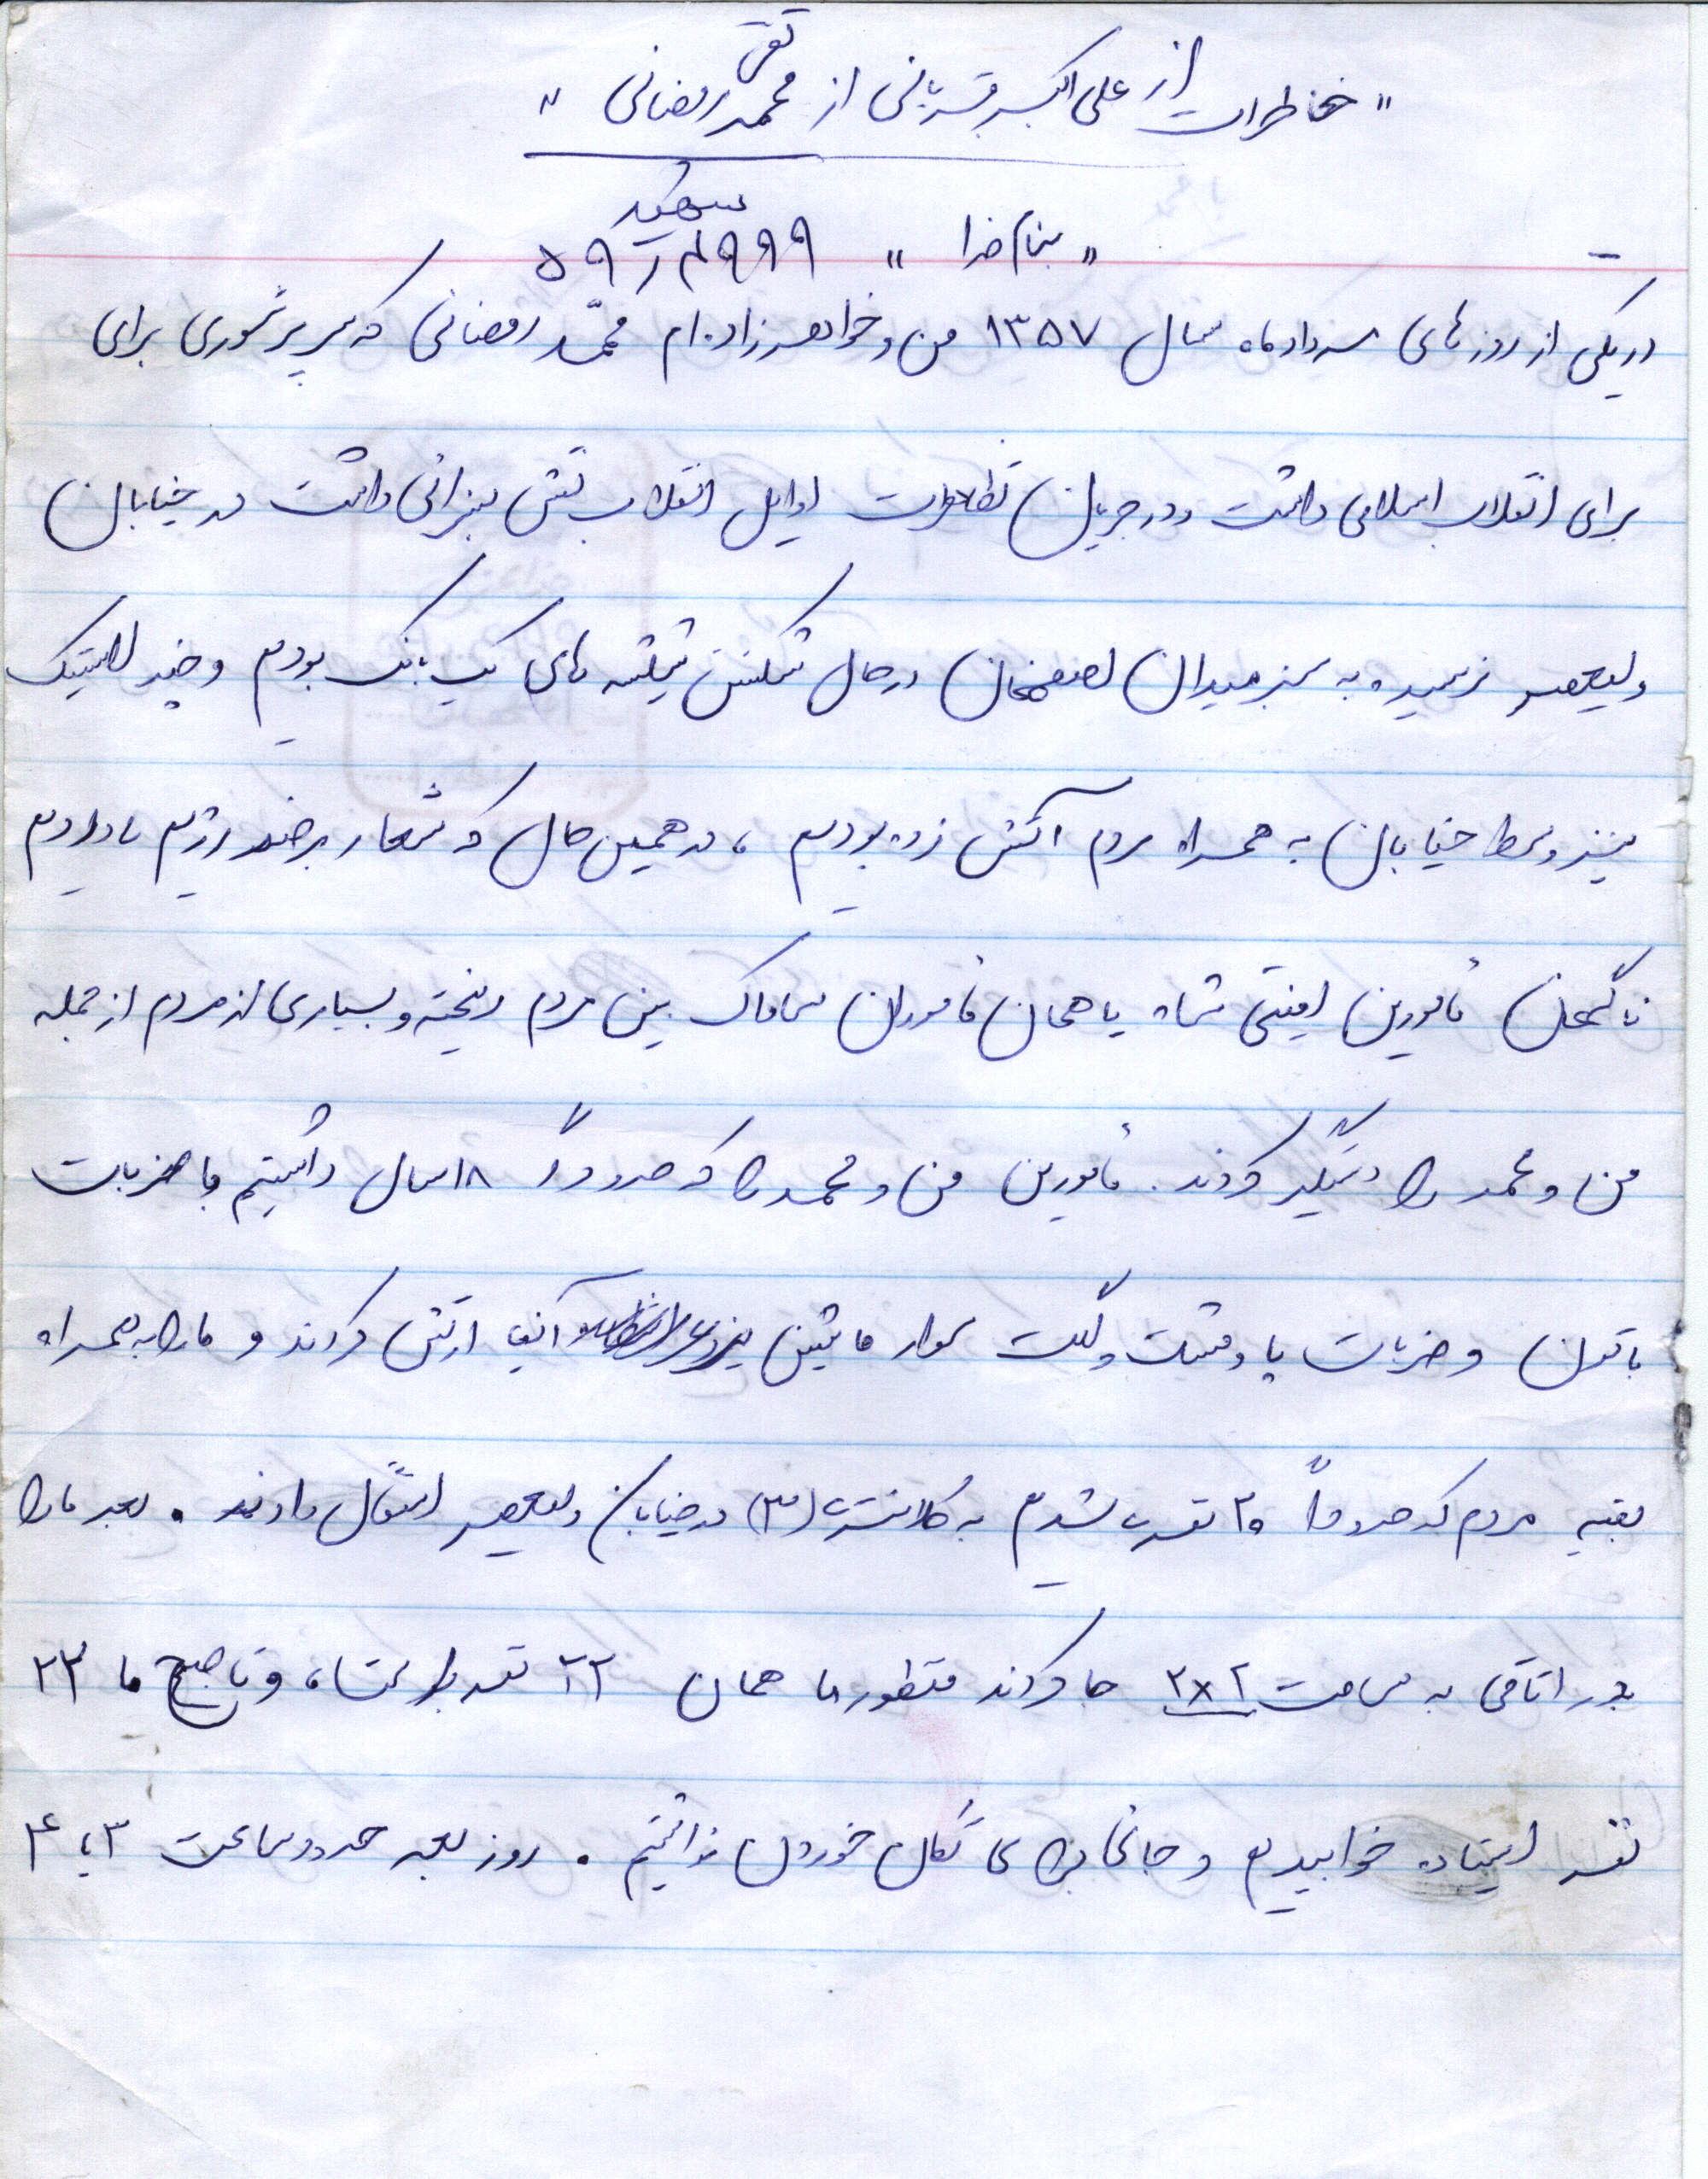 تقی
" خاطرات از علی اکبر قربانی از محمد رمضانی "
شهید
" بنام خدا " ۵۹ر۴۹۹۹
در یکی از روزهای مرداد ماه سال ۱۳۵۷ من و خواهرزاده ام محمّد رمضانی که سر پر شوری برای
برای انقلاب اسلامی داشت و در جریان تظاهرات اوایل انقلاب نقش بسزائی داشت در خیابان
ولیعصر نرسیده به میدان در حال شکستن شیشه های یک بانک بودیم و چند لاستیک
نیز وسط خیابان به همراه مردم آتش زده بودیم ، در همین حال که شعار بر ضد رژیم میدادیم
ناگهان مامورین امنیتی شاه یا همان ماموران ساواک بین مردم ریخته و بسیاری از مردم از جمله
من و محمد را دستگیر کردند . مامورین من و محمد را که حدوداً ۱۸ سال داشتیم با ضربات
باتون و ضربات پا و مشت و لگد سوار ماشین آیفا ارتش کردند و ما را به همراه
بقیه مردم که حدوداً نفر میشدیم به کلانتری (۳) در خیابان ولیعصر انتقال دادند . بعد ما را
در اتاقی به مساحت ۲×۲ جا کردند منظور ما همان ۲۲ نفر بازداشت شده و تا صبح ما ۲۳
نفر ایستاده خوابیدیم و جائی برای تکان خوردن نداشتیم . روز بعد حدود ساعت ۳ یا ۴